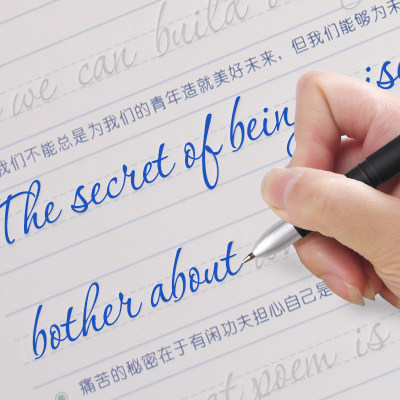 we can build
我们不能总是为我们的青年造就美好未来，但我们能够为未
The secret of being
bother about
痛苦的秘密在于有闲功夫担心自己是
poem is